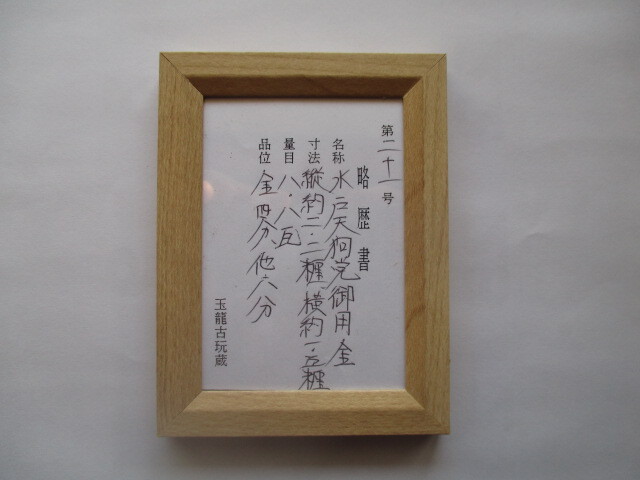 第二十一号
略歴書
名称 水戸天狗党御用金
寸法 縦約二・二糎 横約一・五糎
量目 八・八瓦
品位 金四分、他六分
玉龍古玩蔵